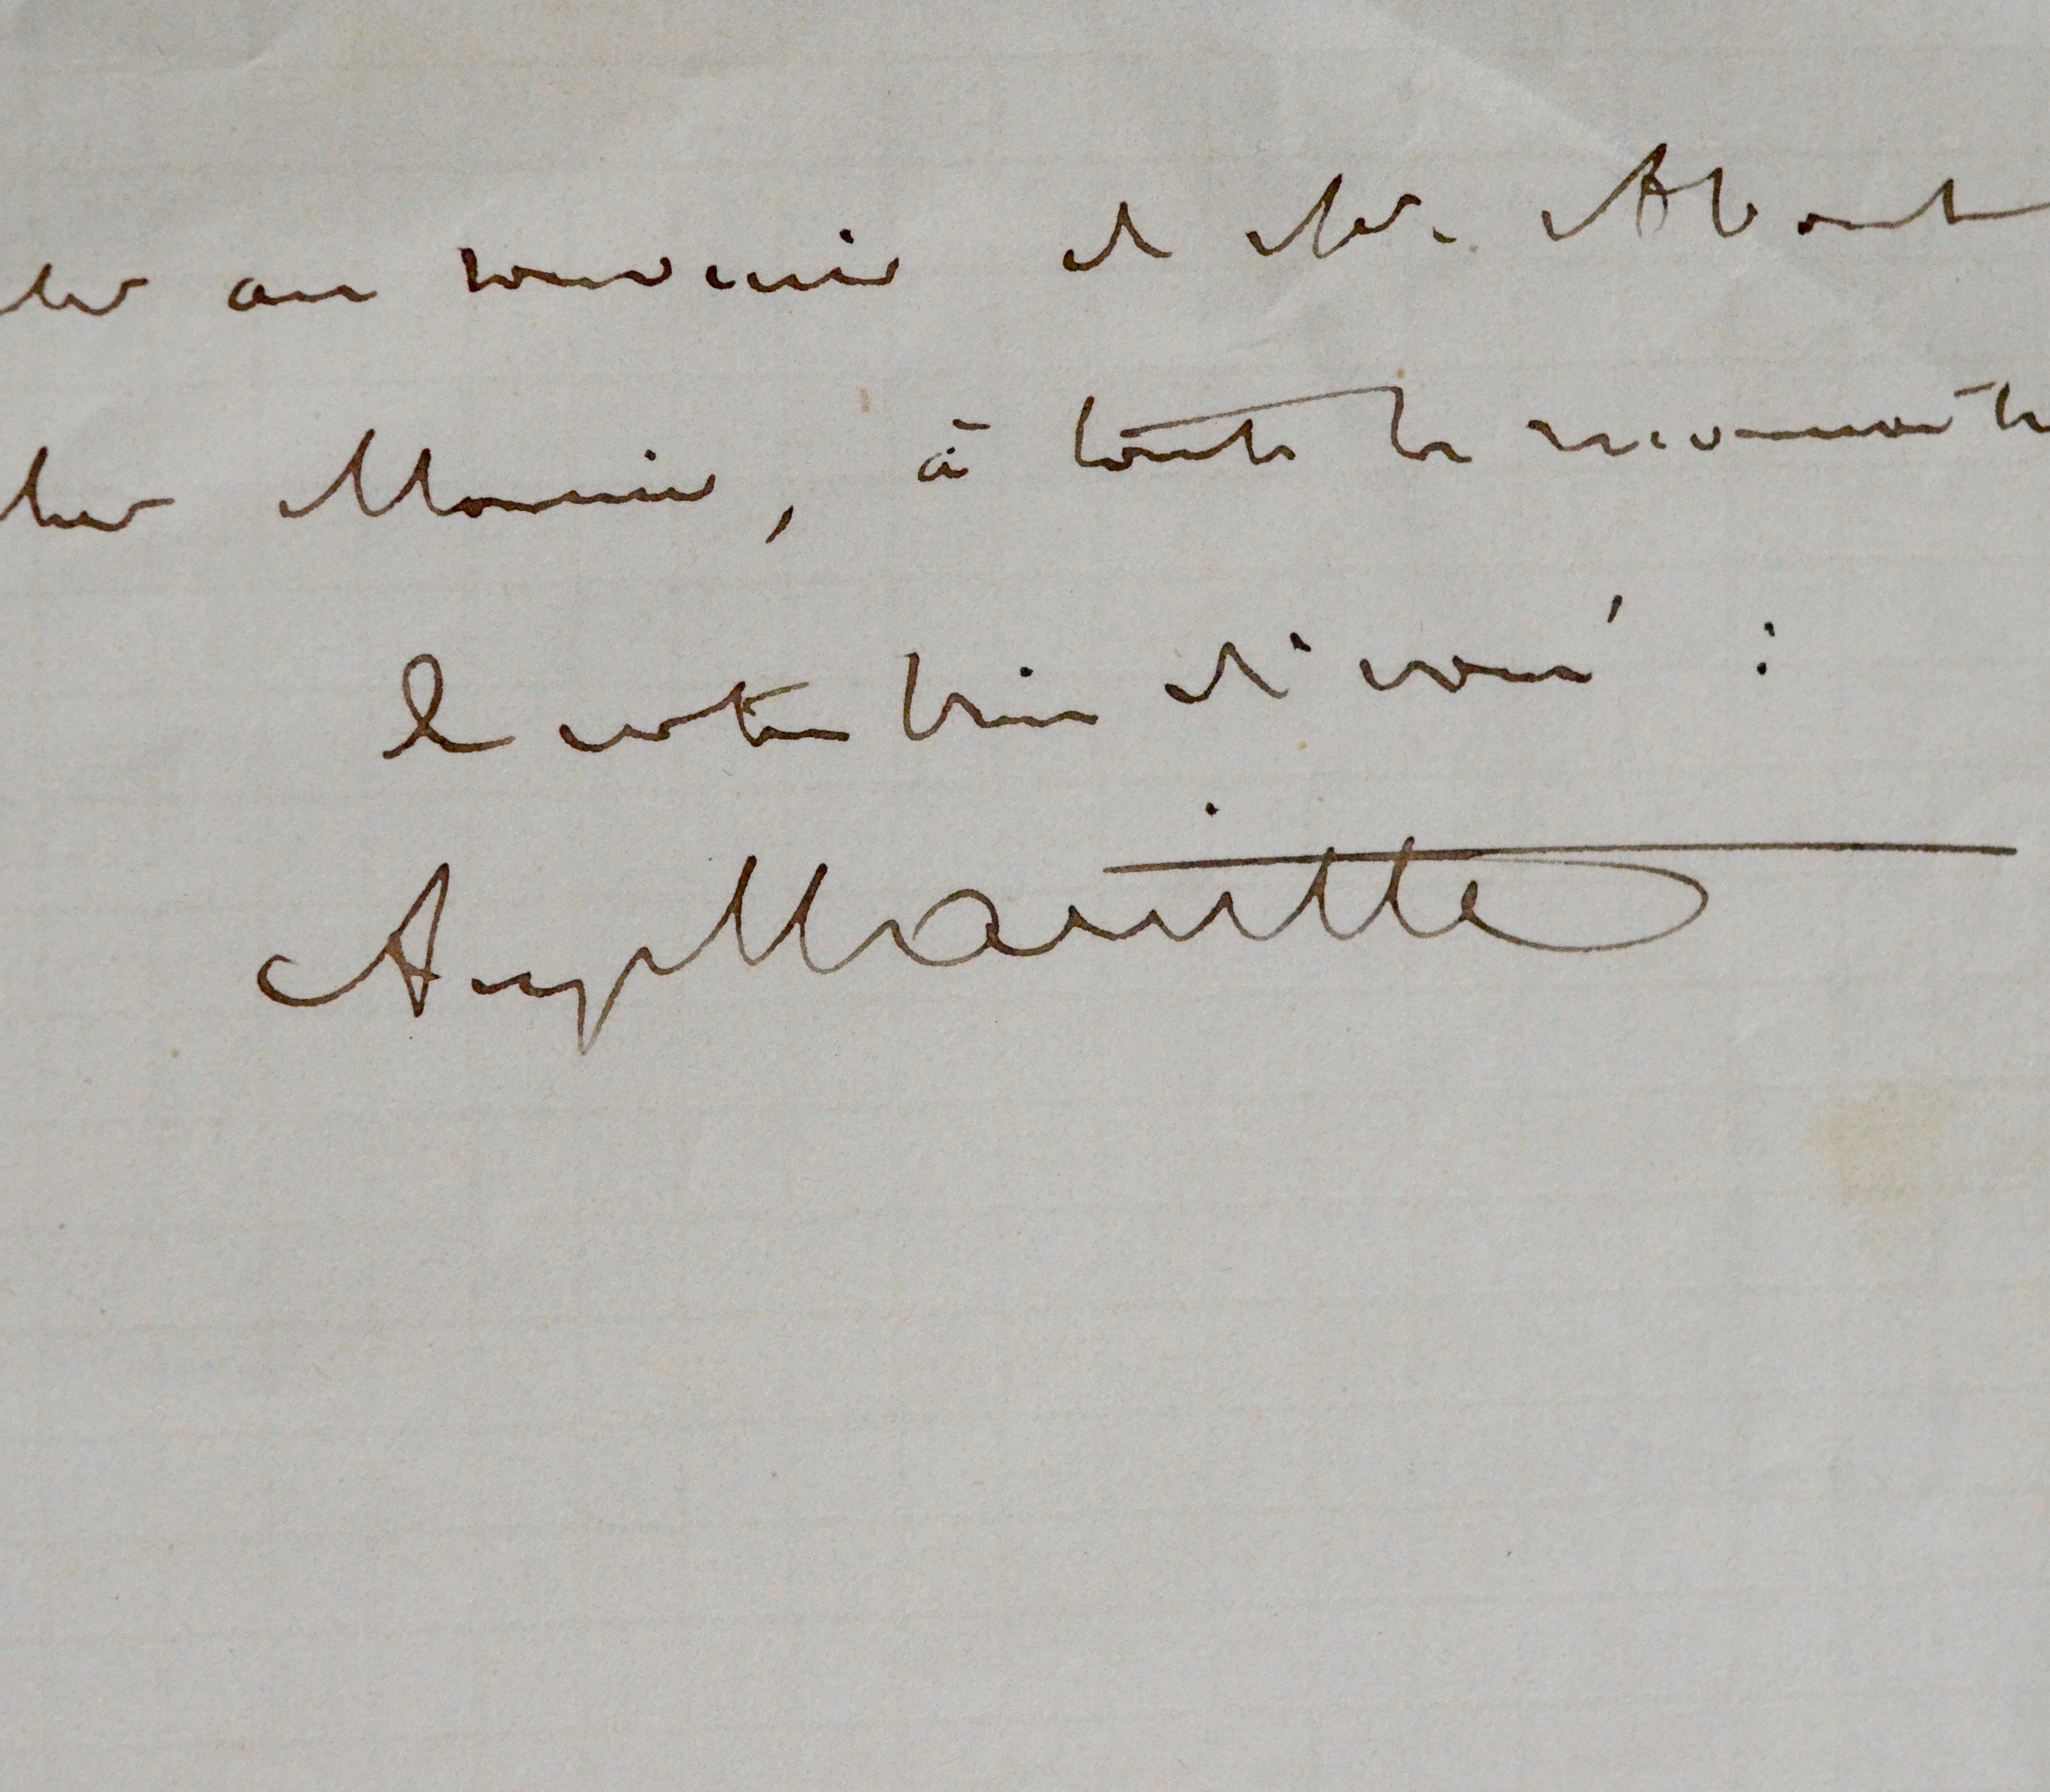 ler au souvenir de Mr. About
cher Monsieur, à toute la reconnaiss
de votre bien dévoué :
Aug Mariette